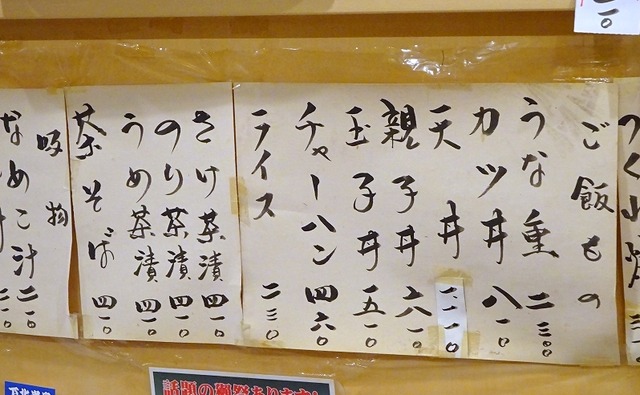 ご飯もの
うな重 二三〇〇
カツ丼 八一〇
天丼 一二一〇
親子丼 六一〇
玉子丼 五一〇
チャーハン 四六〇
ライス 二三〇
さけ茶漬 四一〇
のり茶漬 四一〇
うめ茶漬 四一〇
茶そば 四一〇
吸物
なめこ汁 二一〇